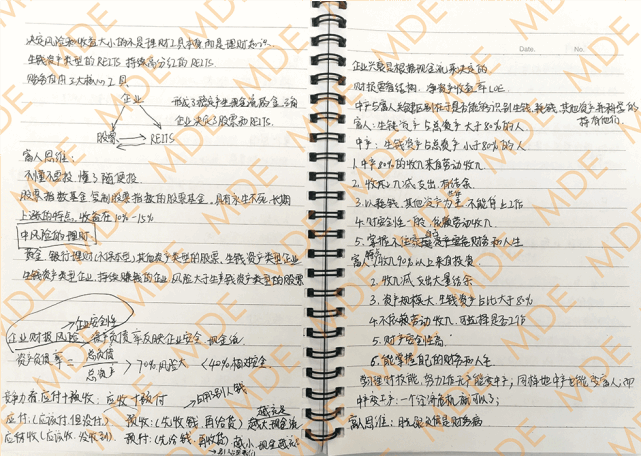 决定风险和收益大小的不是理财工具本身而是理财知识。
生钱资产类型的REITS 持续高分红的REITS.
财务自由3大核心工具
企业
股票 REITS
形成了稳定产生现金流的金三角
企业决定了股票和REITS.
富人思维:
不懂不要投 懂了随便投
股票指数基金 复制股票指数的股票基金,具有永生不死 长期
上涨的特点,收益在10%-15%
中风险的理财
黄金 银行理财(不保本型)其他资产类型的股票,生钱资产类型企业
生钱资产类型企业,持续赚钱的企业,风险大于生钱资产类型的股票
企业安全性
企业财报风险 资产负债率反映企业安全 现金流
资产负债率 = 总负债 / 总资产 >70%风险大 <40%相对安全
竞争力看应付+预收: 应收+预付 占用别人钱
应付:(应该付.但没付) 预收:(先收钱 再给货) 越大现金流
越充足
应收(应该收.没收到). 预付:(先给钱.再收货) 越小 现金越充足
Date. No.
企业兴衰是根据现金流来决定的
财报要看结构. 净资产收益率LOE.
中产与富人关键区别在于是否能够识别生钱,耗钱,其他资产并科学的
持有他们.
富人:生钱资产占总资产大于80%的人
中产:生钱资产占总资产小于80%的人
1.中产80%的收入来自劳动收入
2.收入减支出有结余
3.以耗钱,其他资产为主 不能自主工作
4.财务安全性一般,依赖劳动收入
5.掌握不住自己财务和人生
富人特点:1.收入90%以上来自投资
2.收入减支出大量结余
3.资产规模大,生钱资产占比大于80%
4.不依赖劳动收入.可选择是否工作
5.财产安全性高
6.能掌握自己的财务和人生
学理财技能,努力工作几乎能变中产,同样地中产也能变富人,而
中产变工产:一个经济危机就可以了;
富人思维: